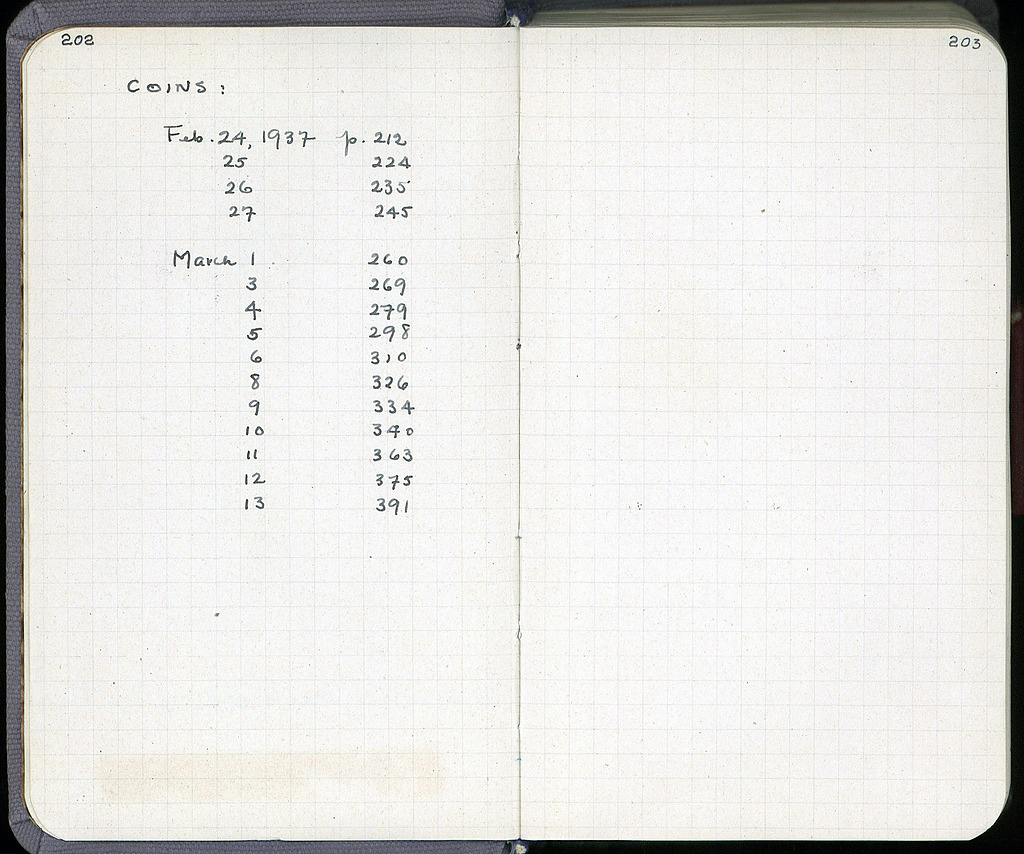 202
COINS:
Feb. 24, 1937 p. 212
25 224
26 235
27 245
March 1 260
3 269
4 279
5 298
6 310
8 326
9 334
10 340
11 363
12 375
13 391
203